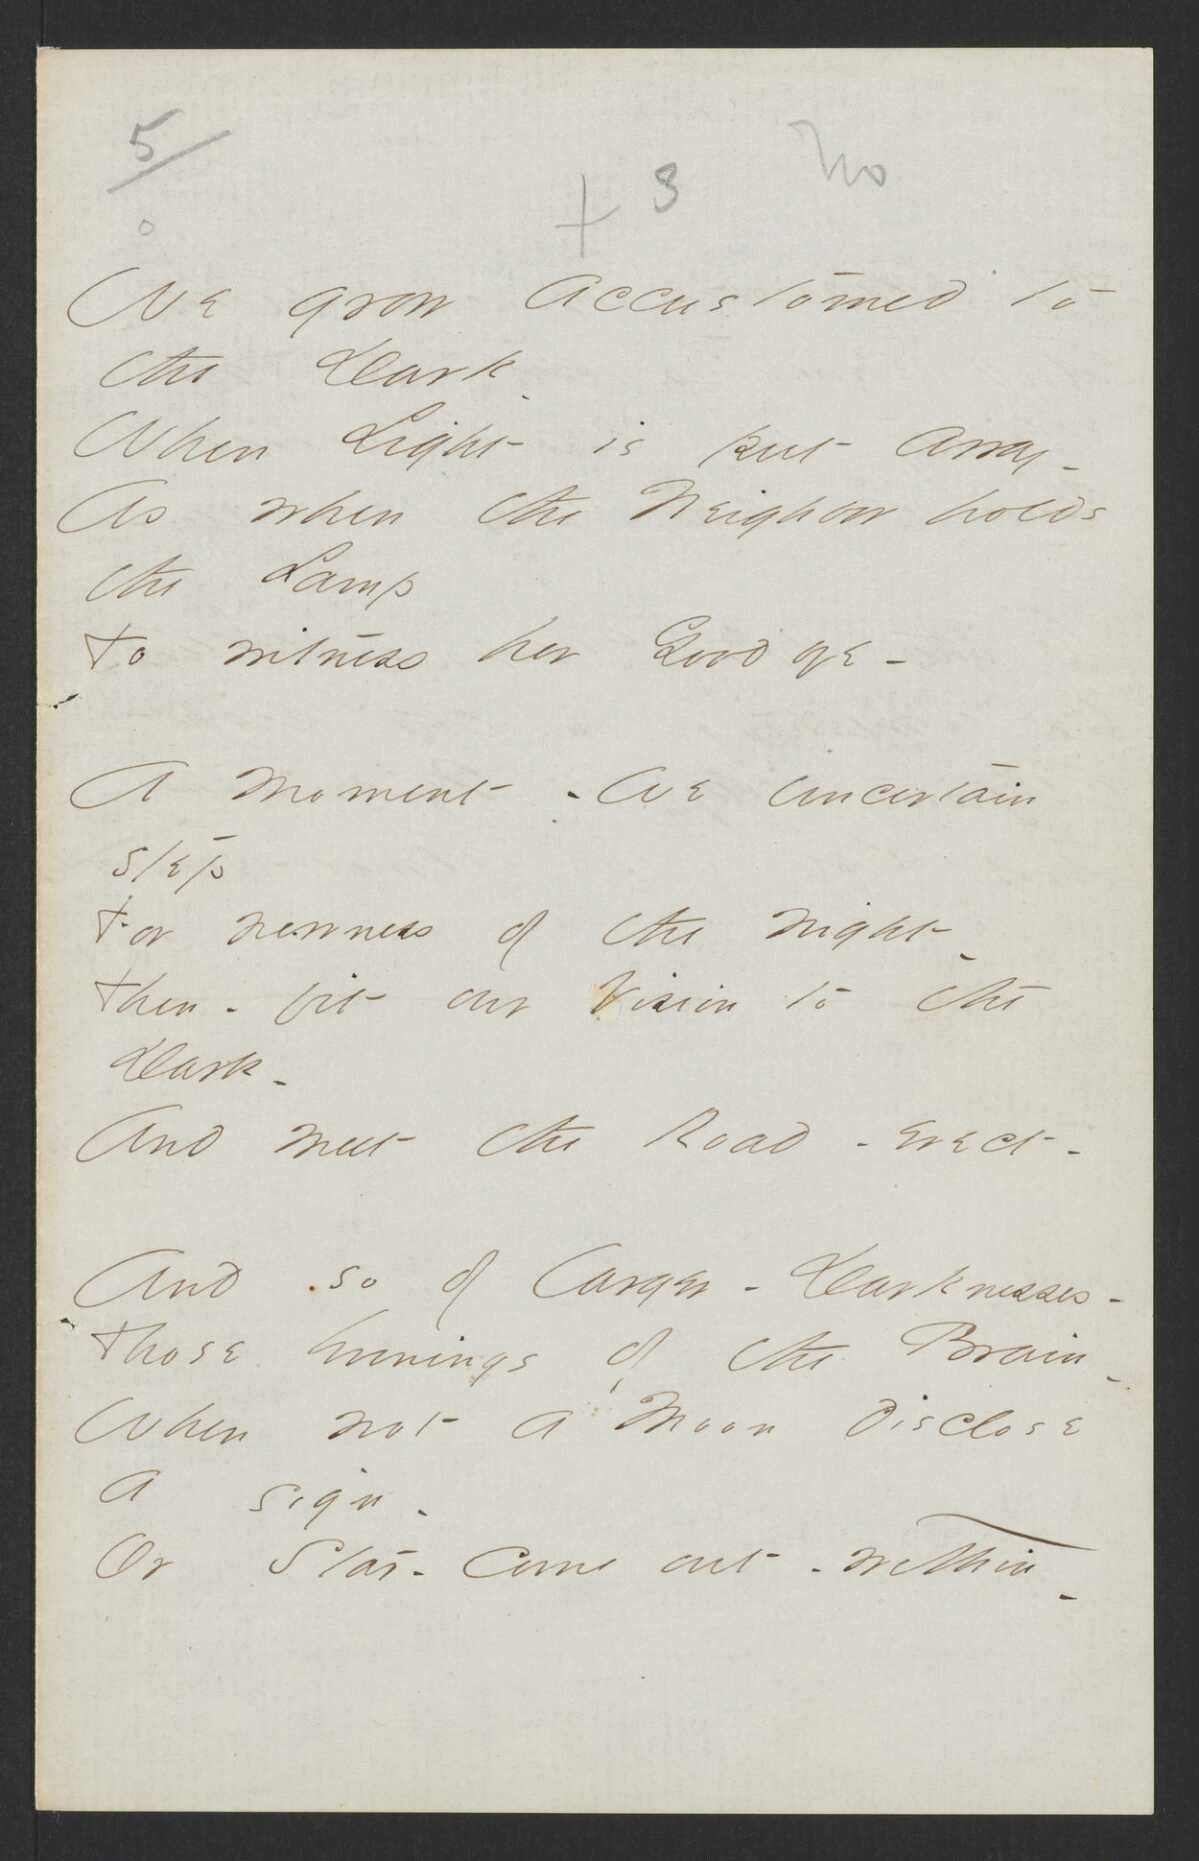 5
+ 3 No
o
We grow accustomed to
the Dark
When Light is put away -
As when the Neighbor holds
the Lamp
To witness her Good bye -
A Moment - We uncertain
step
For newness of the night -
Then - fit our Vision to the
Dark -
And meet the Road - erect -
And so of larger - Darknesses -
Those Evenings of the Brain -
When not a Moon disclose
a sign -
Or Star - come out - within -